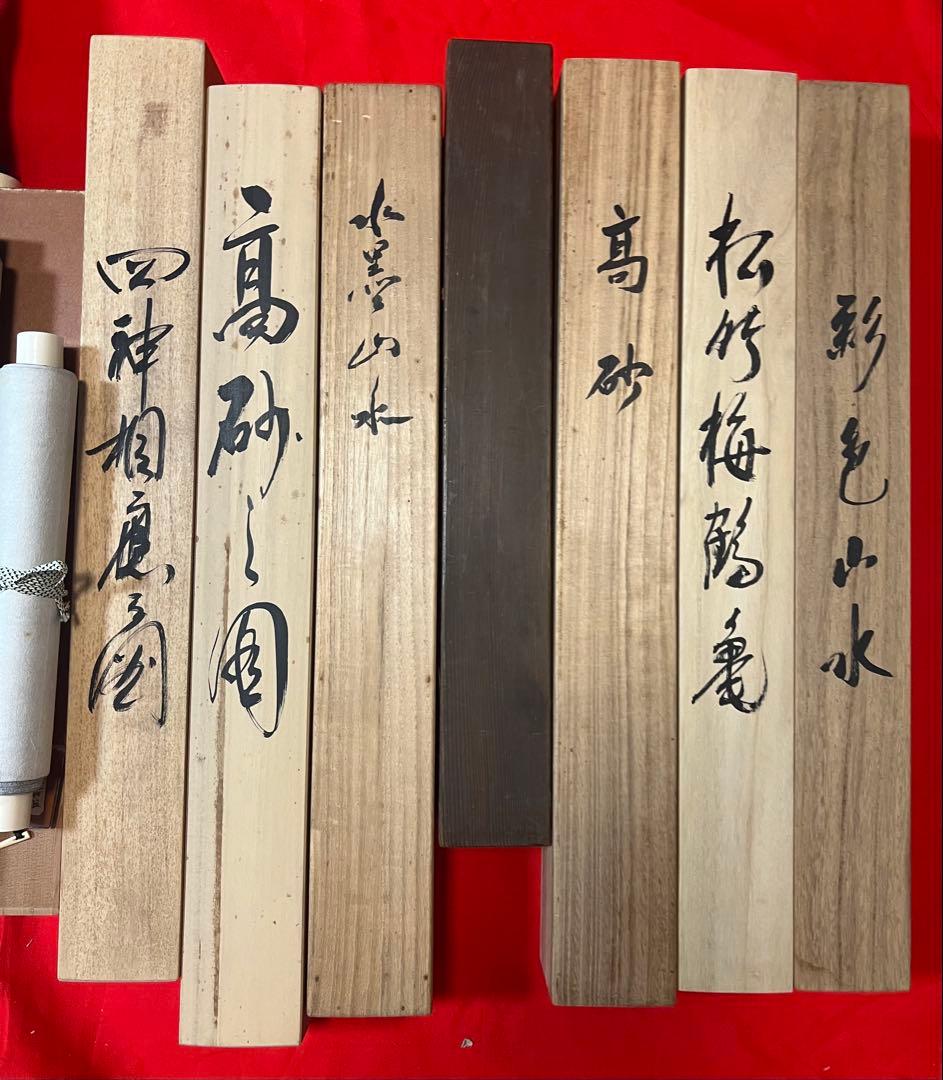 彩色山水
松竹梅鶴亀
高砂
水墨山水
高砂之図
四神相應之図